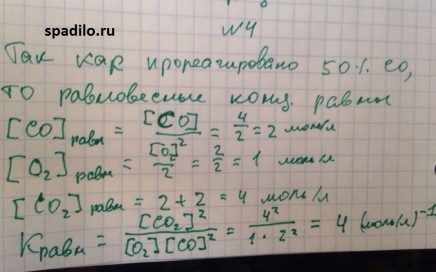 spadilo.ru
№4
Так как прореагировано 50% CO,
то равновесные конц. равны
[CO] равн = [CO]/2 = 4/2 = 2 моль/л
[O₂] равн = [O₂]/2 = 2/2 = 1 моль/л
[CO₂] равн = 2+2 = 4 моль/л
Kравн = [CO₂]²/[O₂][CO]² = 4²/1·2² = 4 (моль/л)⁻¹